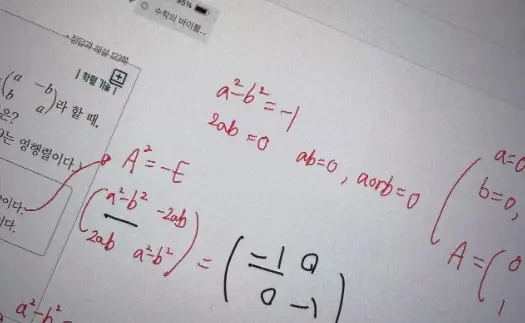 35%
수학의 바이블...
정답과 해설 122쪽
| 학평 기출 |
(a -b
b a)라 할 때,
은?
는 영행렬이다.)
이다.
다.
a²-b²=-1
2ab=0 ab=0, a or b=0
A²=-E
(a²-b² -2ab
2ab a²-b²) = (-1 0
0 -1)
a=0
b=0,
A=(0
1
a²-b²=